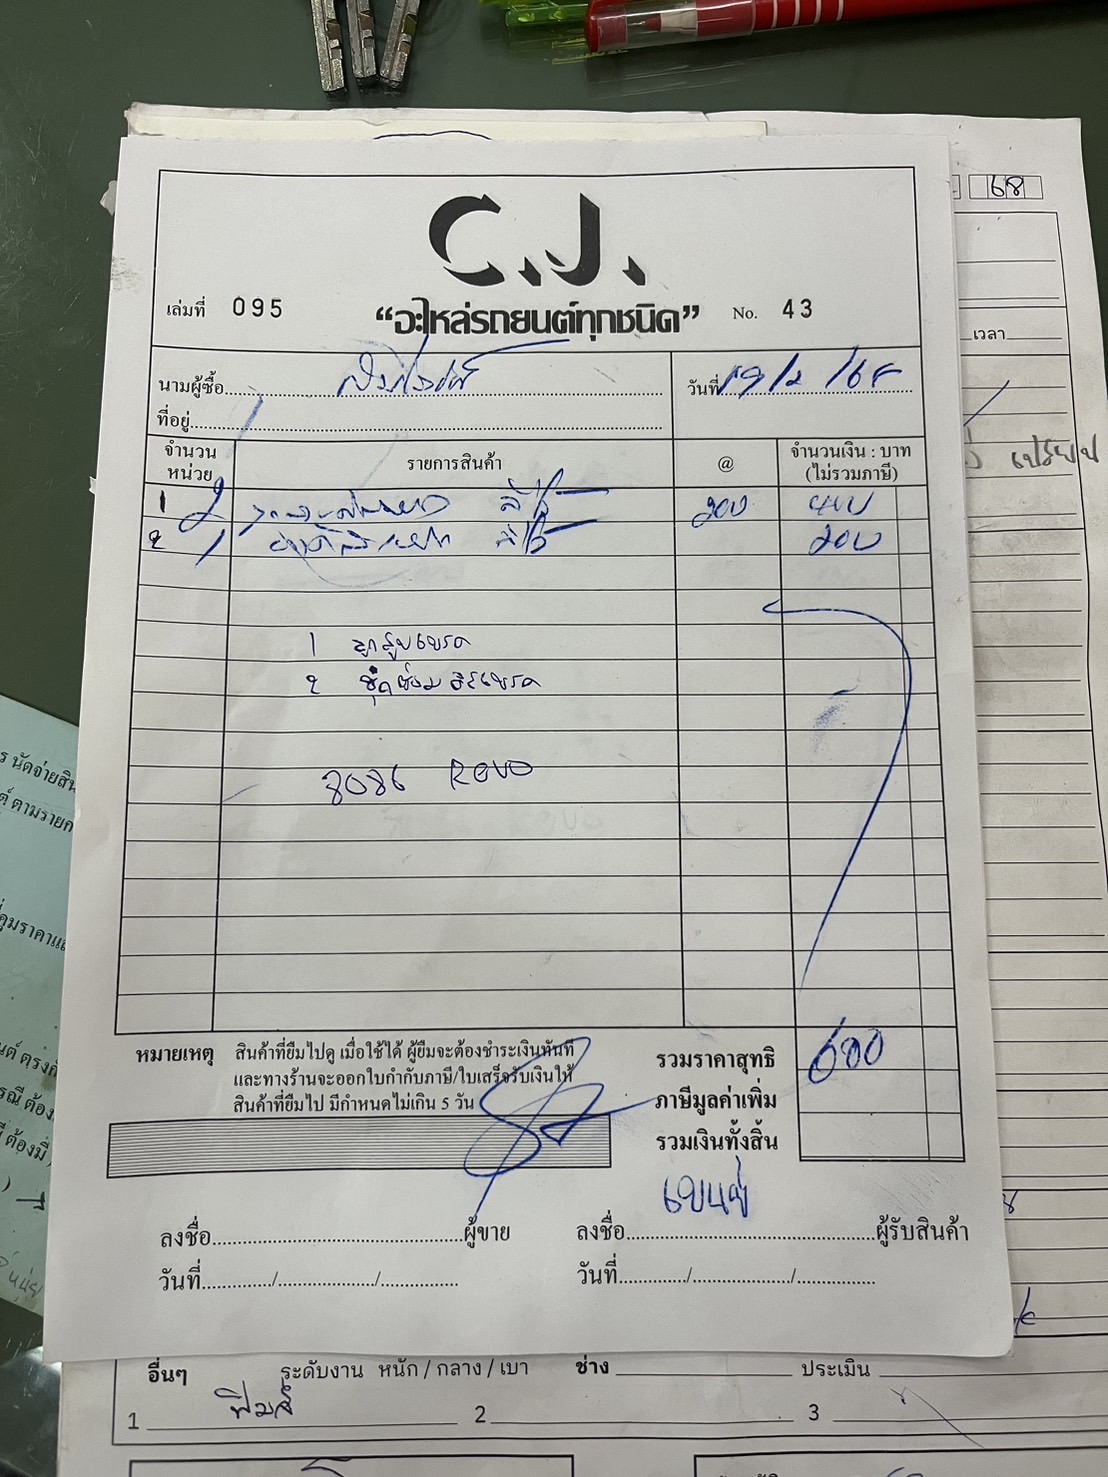 68
C.J.
เล่มที่ 095
“อะไหล่รถยนต์ทุกชนิด” No. 43
เวลา
นามผู้ซื้อ
วันที่ 19/2/68
ที่อยู่
จำนวน
หน่วย
รายการสินค้า
@
จำนวนเงิน : บาท
(ไม่รวมภาษี)
1 2 200 400
2 1 200
1 ลูกสูบเบรค
2 ชุดซ่อมดิสเบรค
8086 REVO
ร นัดจ่ายสิน
ต์ ตามรายก
หมายเหตุ สินค้าที่ยืมไปดู เมื่อใช้ได้ ผู้ยืมจะต้องชำระเงินทันที
และทางร้านจะออกใบกำกับภาษี/ใบเสร็จรับเงินให้
สินค้าที่ยืมไป มีกำหนดไม่เกิน 5 วัน
รวมราคาสุทธิ 600
ภาษีมูลค่าเพิ่ม
รวมเงินทั้งสิ้น
ลงชื่อ ผู้ขาย
ลงชื่อ ผู้รับสินค้า
วันที่ / /
วันที่ / /
อื่นๆ ระดับงาน หนัก / กลาง / เบา ช่าง ประเมิน
1 2 3